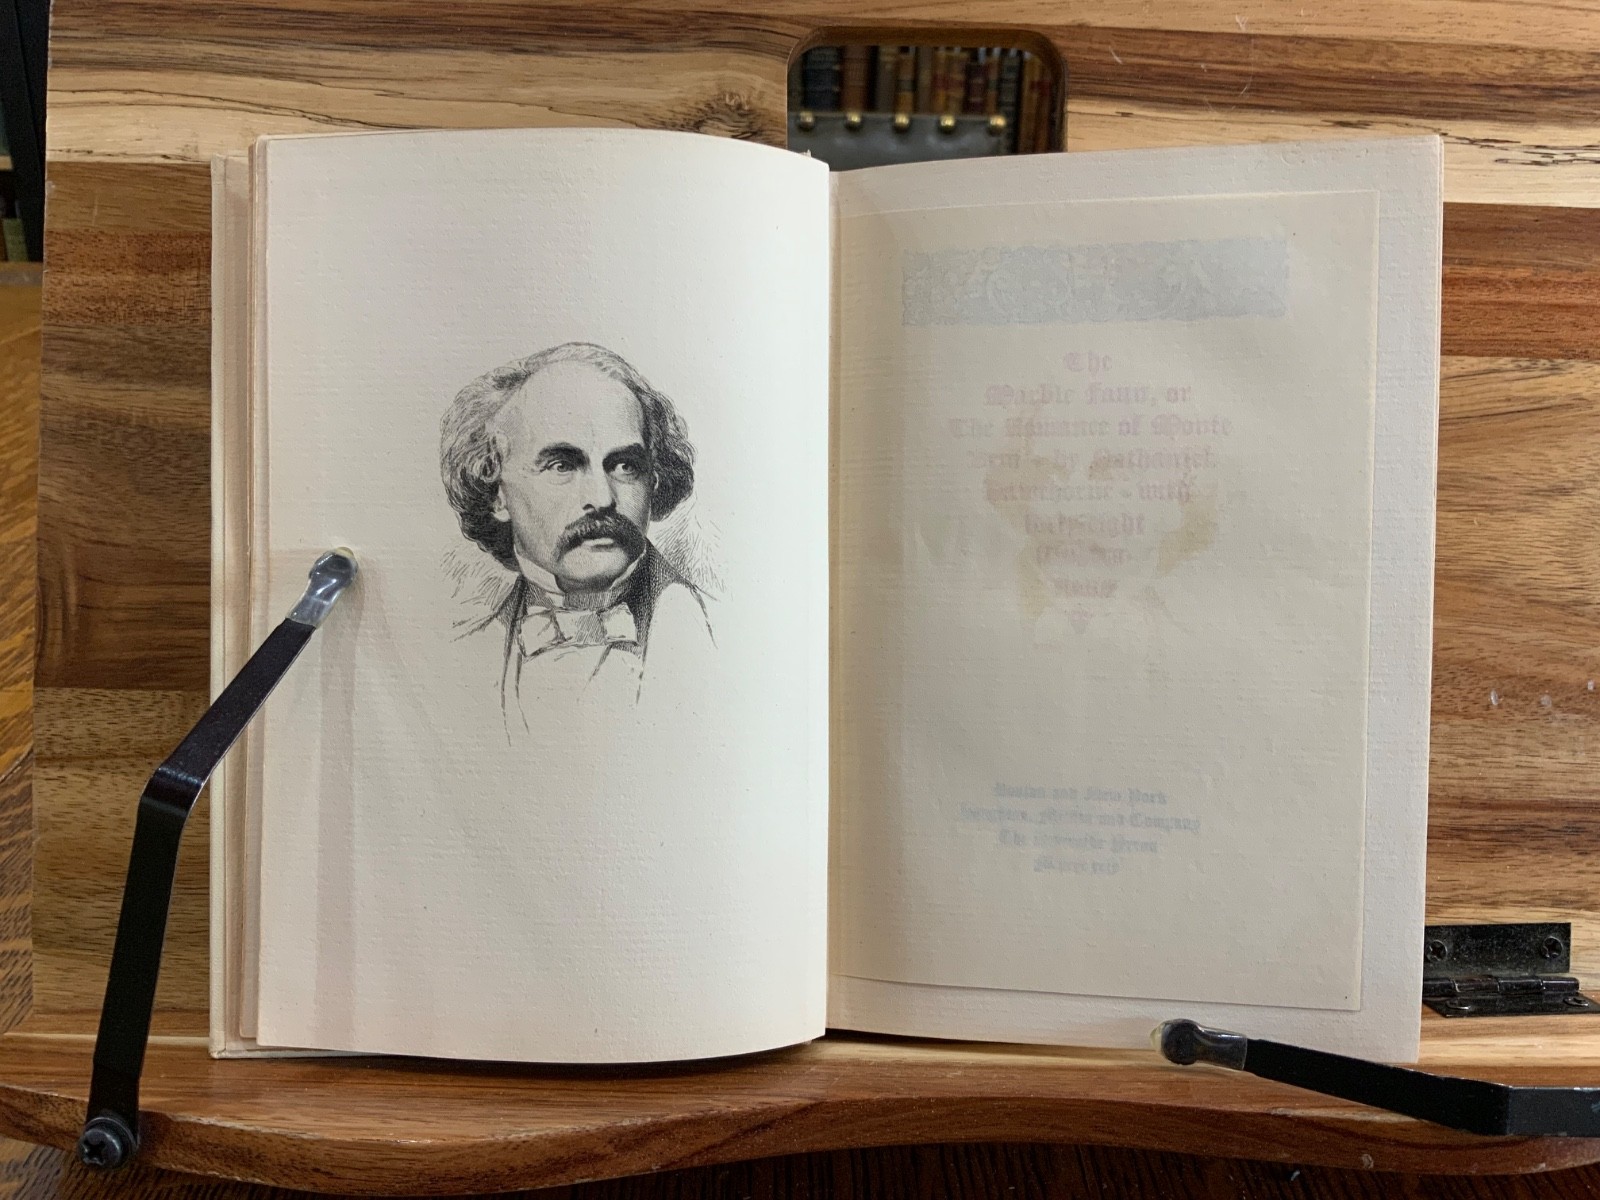 The
Marble Faun, or
The Romance of Monte
Beni - by Nathaniel
Hawthorne - with
forty-eight
Boston and New York
Houghton, Mifflin and Company
The Riverside Press